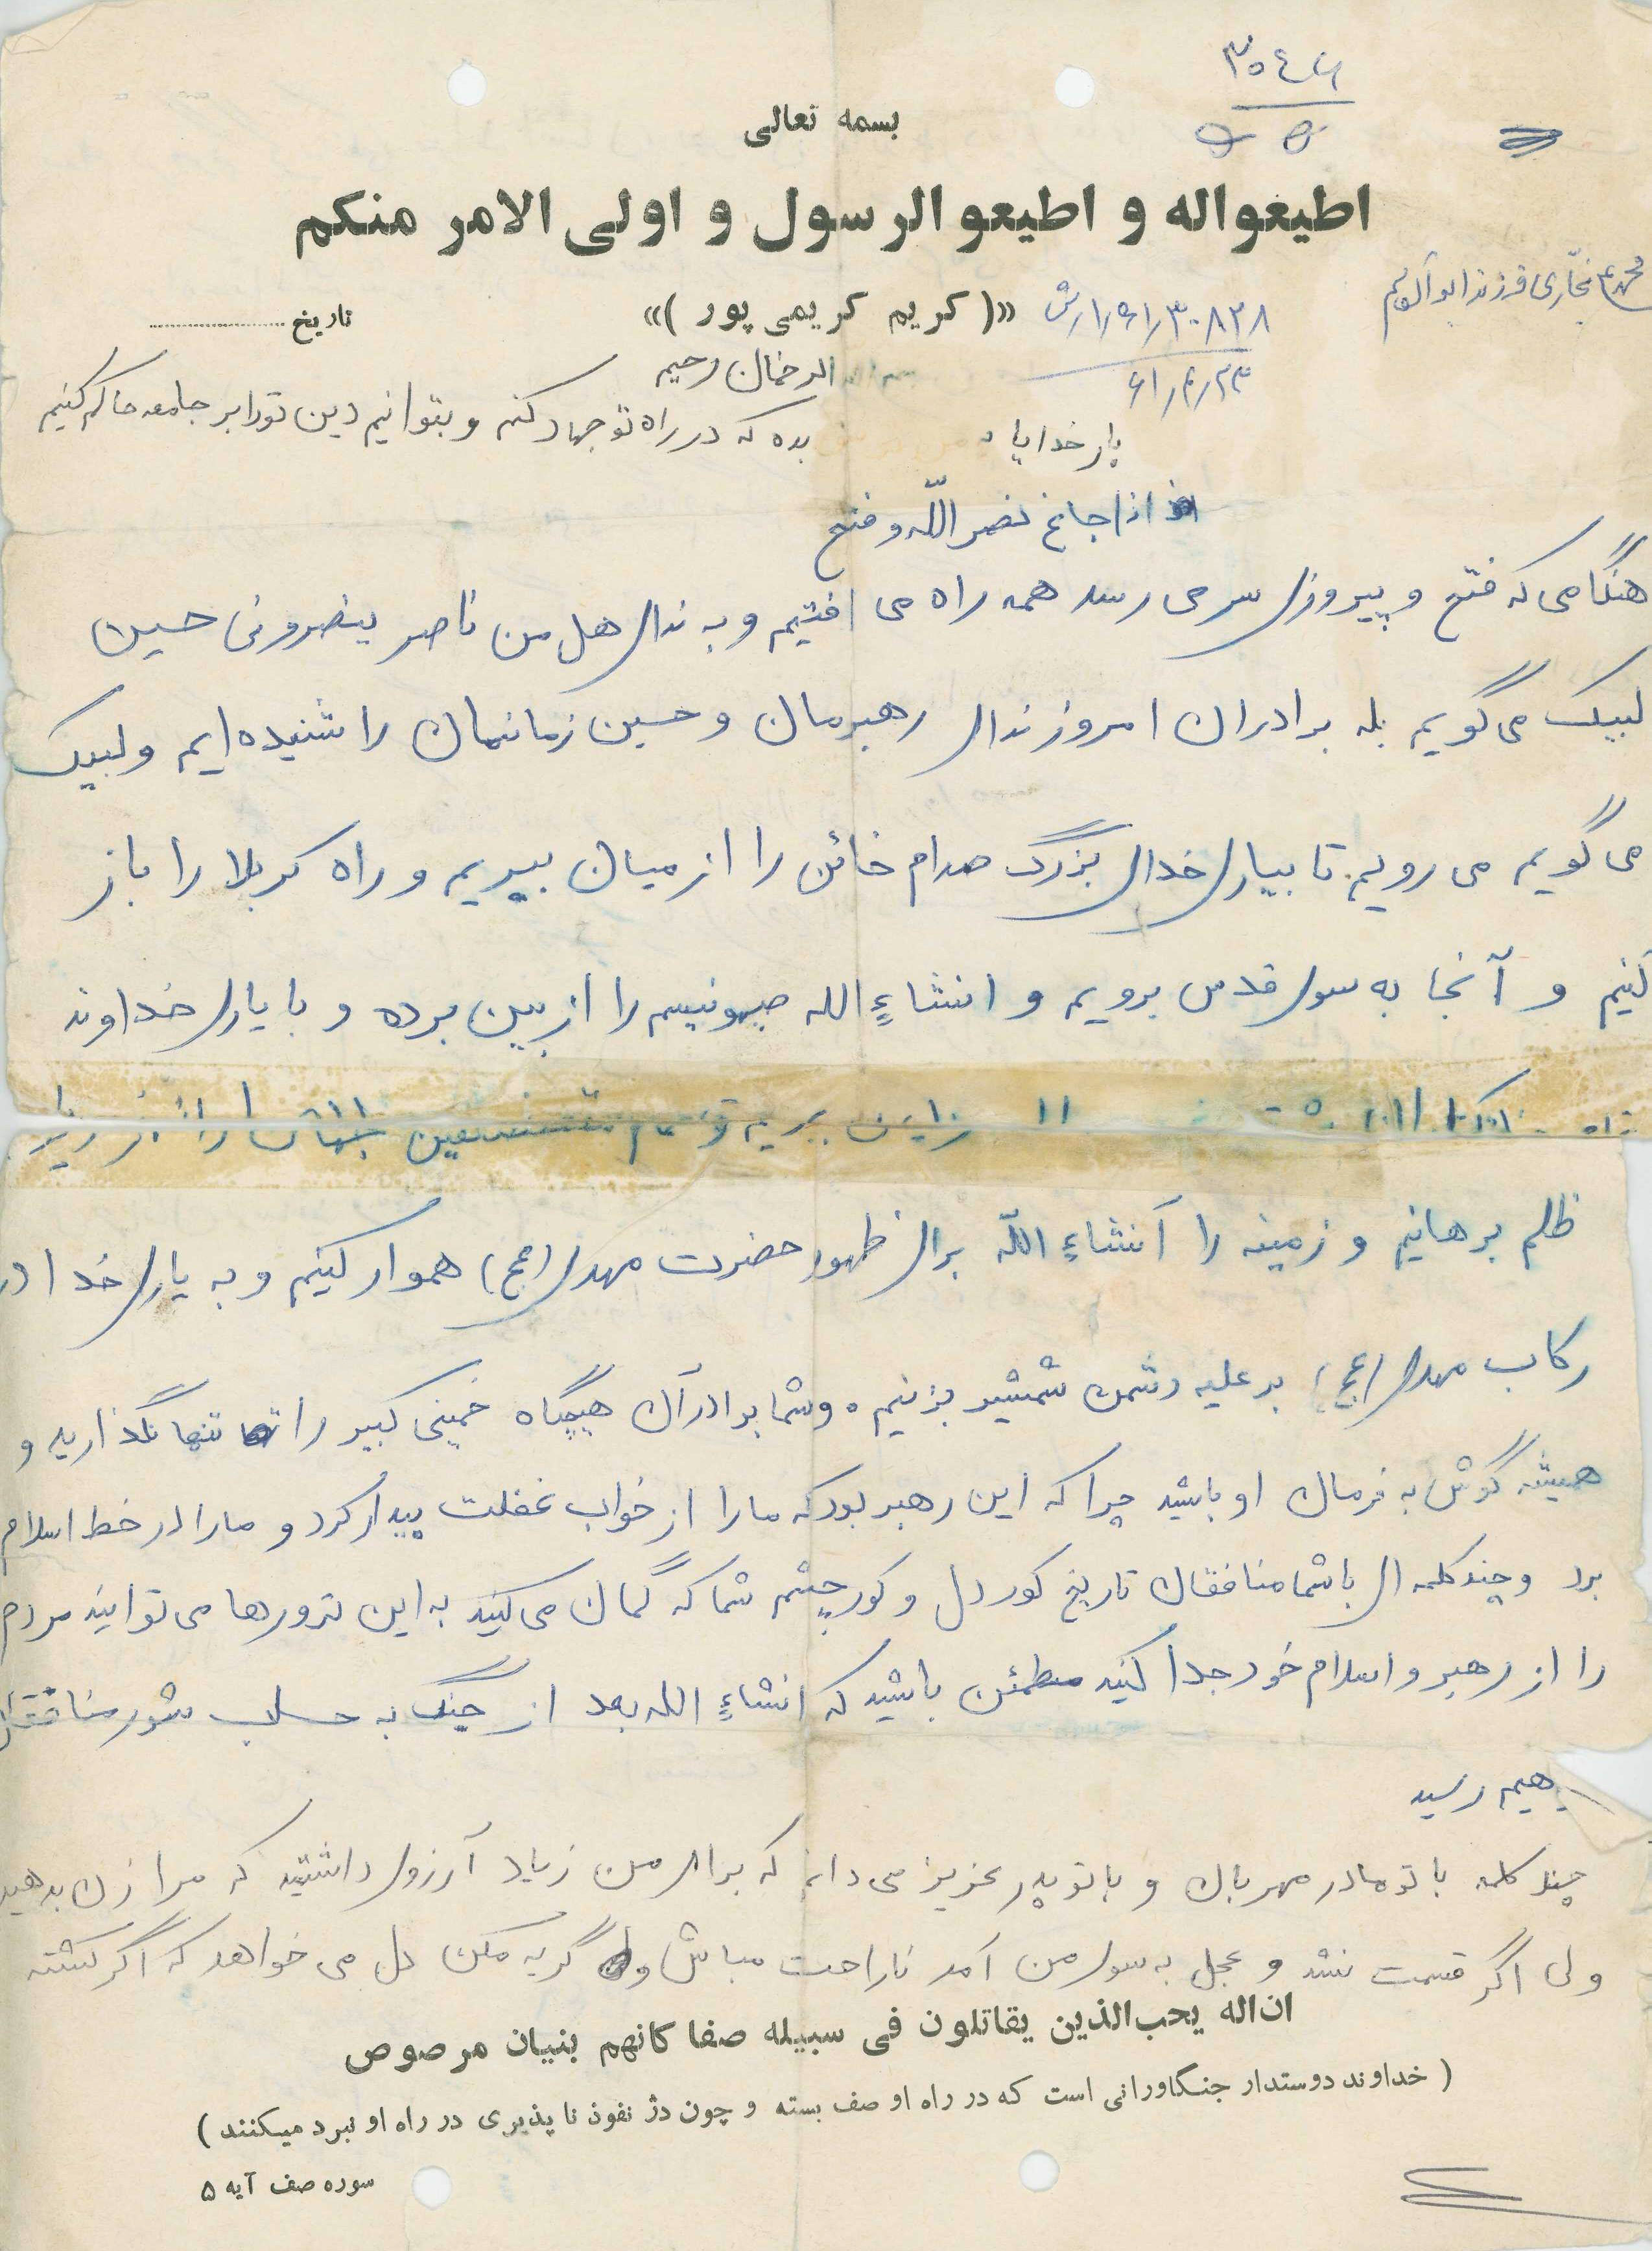 ۳۰٤۶
بسمه تعالی
اطیعواله و اطیعو الرسول و اولی الامر منکم
فرزند ابوالقاسم
«( کریم کریمی پور )»
تاریخ
الرحمان رحیم
بار خدایا
بده که در راه تو جهاد کنم و بتوانیم دین تو را بر جامعه حاکم کنیم
اذا جاء نصر اللّه و فتح
هنگامی که فتح و پیروزی سر می رسد همه راه می افتیم و به ندای هل من ناصر ینصرونی حسین
لبیک می گویم بله برادران امروز ندای رهبرمان و حسین زمانمان را شنیده ایم و لبیک
می گویم می رویم تا بیاری خدای بزرگ صدام خائن را از میان ببریم و راه کربلا را باز
کنیم و آنجا به سوی قدس برویم و انشاءِ الله صهونیسم را از بین برده و با یاری خداوند
ببریم مستضعفین جهان را از زیر
ظلم برهانیم و زمینه را آنشاءِ اللّه برای ظهور حضرت مهدی (عج) هموار کنیم و به یاری خدا در
رکاب مهدی (عج) بر علیه دشمن شمشیر بزنیم. و شما برادران هیچگاه خمینی کبیر را تنها نگذارید و
همیشه گوش به فرمان او باشید چرا که این رهبر بود که ما را از خواب غفلت بیدار کرد و ما را در خط اسلام
برد و چند کلمه ای با شما منافقان تاریخ کور دل و کور چشم شما که گمان می کنید به این ترورها می توانید مردم
را از رهبر و اسلام خود جدا کنید مطمئن باشید که انشاءِ الله بعد از جنگ به حساب شور منافقان
هیم رسید
چند کلمه با تو مادر مهربان و با تو پدر عزیز می دانم که برای من زیاد آرزوی داشتید که مرا زن بدهید
ولی اگر قسمت نشد و عجل به سوی من آمد ناراحت مباش و گریه مکن دل می خواهد که اگر کشته
ان اله یحب الذین یقاتلون فی سبیله صفا کانهم بنیان مرصوص
( خداوند دوستدار جنگاورانی است که در راه او صف بسته و چون دژ نفوذ ناپذیری در راه او نبرد میکنند )
سوره صف آیه ۵